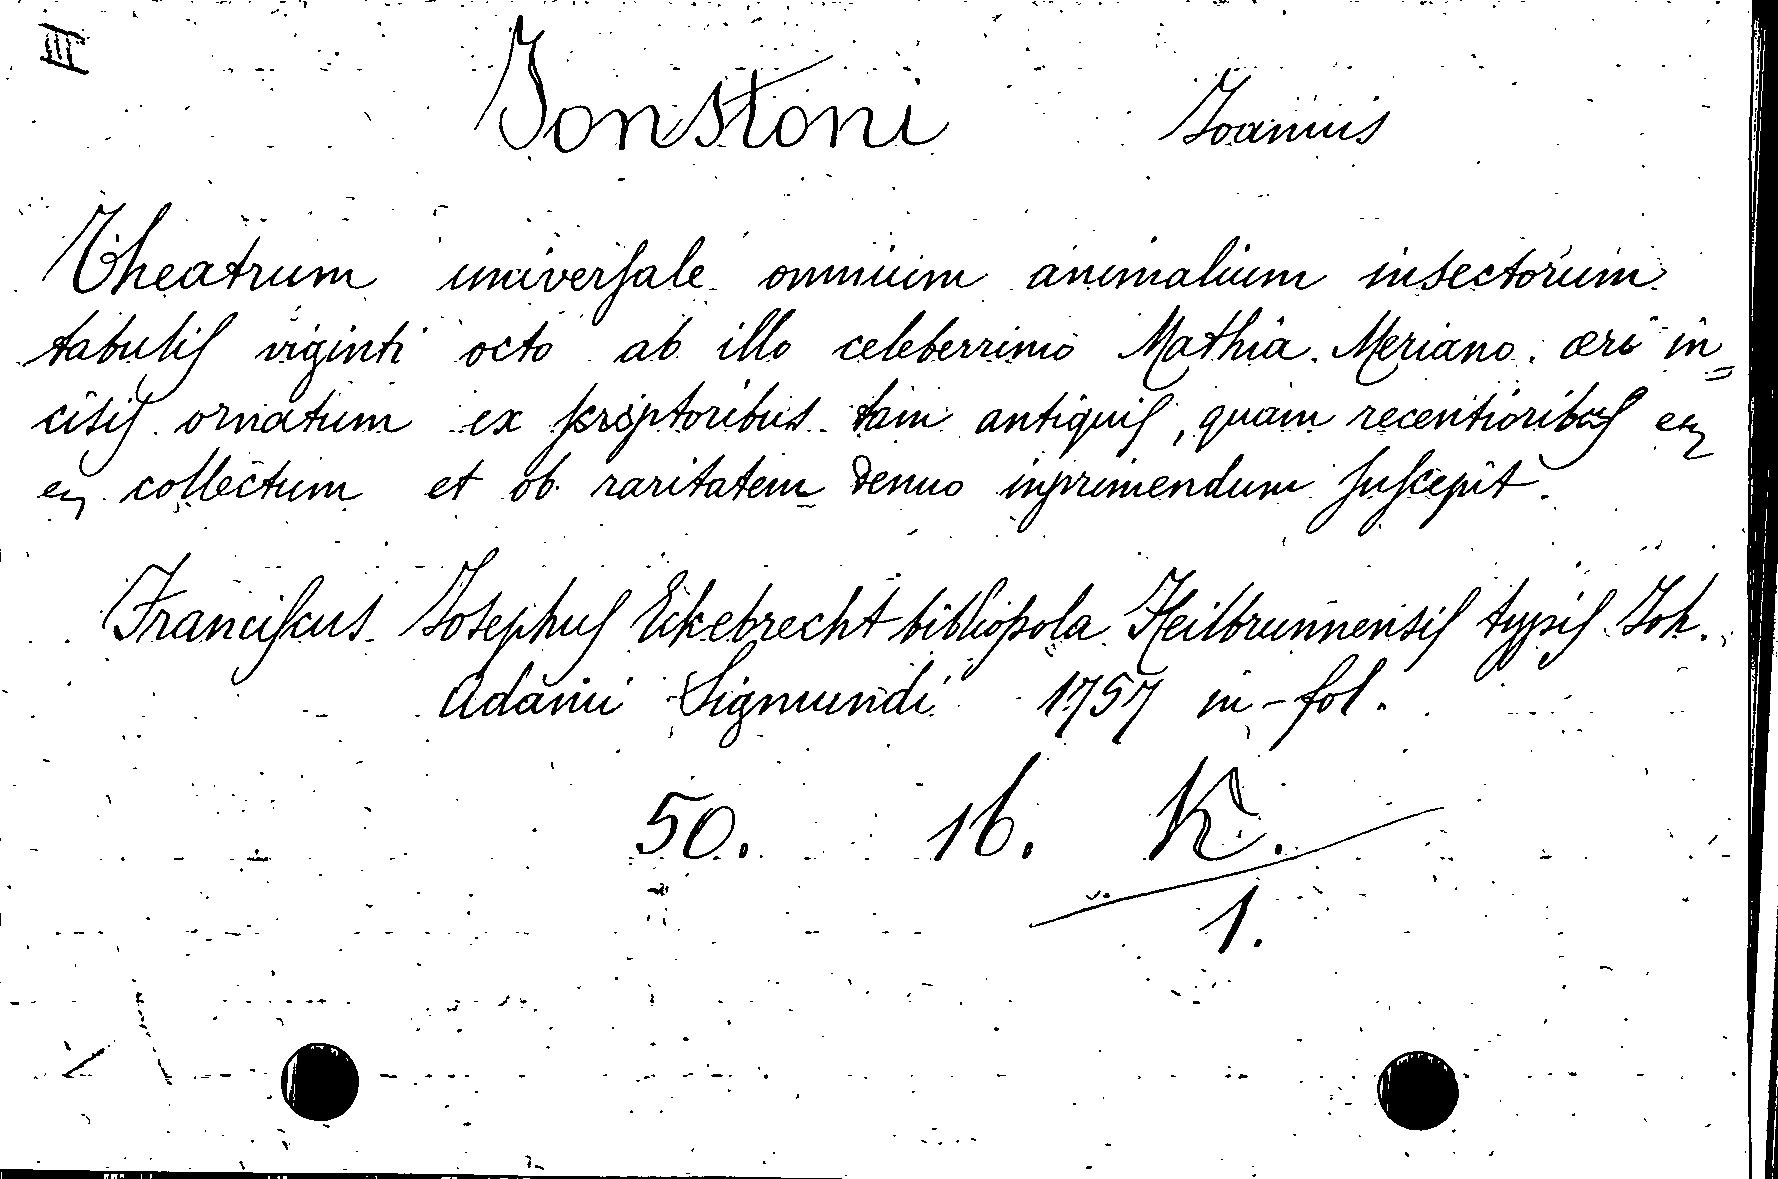 III
Jonstoni Joannis
Theatrum universale omnium animalium insectorum
tabulis viginti octo ab illo celeberrimo Mathia Meriano æri in=
cisis ornatum ex scriptoribus tam antiquis, quam recentioribus etz
etz collectum et ob raritatem denuo inprimendum suscepit.
Franciscus Josephus Eckebrecht bibliopola Heilbrunnensis typis Joh.
Adami Sigmundi 1757 in-fol.
50. 16. K.
1.